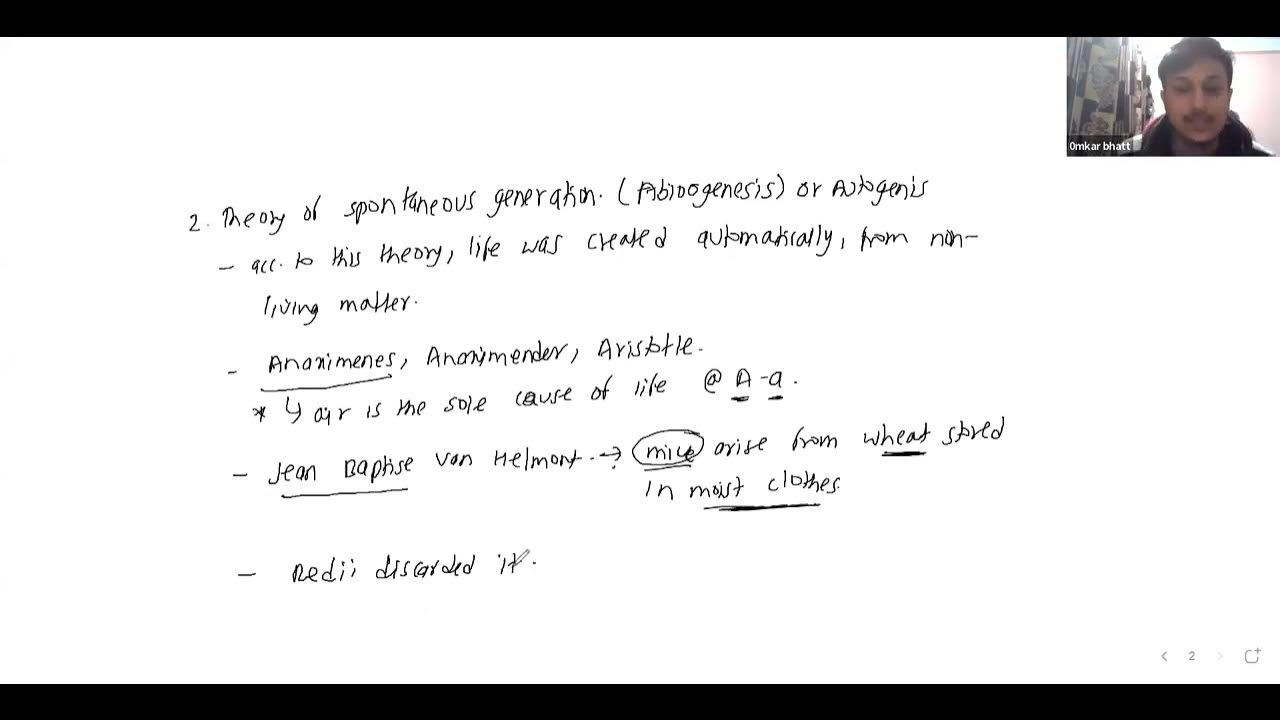 Omkar bhatt
2. Theory of spontaneous generation. (Abiogenesis) or Autogenis
- acc. to this theory, life was created automatically, from non-
living matter.
- Anaximenes, Anaximender, Aristotle.
* ↳ air is the sole cause of life @ A-a.
- Jean Baptise Van Helmont. → mice arise from wheat stored
in moist clothes.
- Redii discarded it.
2